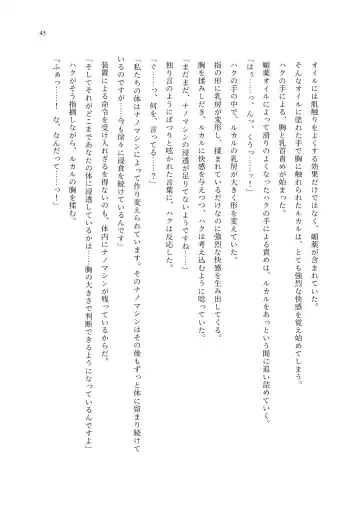 45
オイルには肌触りをよくする効果だけではなく、媚薬が含まれていた。
そんなオイルに塗れた手で胸に触れられたルカルは、とても強烈な快感を覚え始めてしまう。
ハクの手による、胸と乳首責めが始まった。
媚薬オイルによって滑りのよくなったハクの手による責めは、ルカルをあっという間に追い詰めていく。
「はぅ……っ、んっ、くうっ……っ！」
ハクの手の中で、ルカルの乳房が大きく形を変えていた。
指の形に乳房が変形し、揉まれているだけなのに強烈な快感を生み出してくる。
胸を揉みしだき、ルカルに快感を与えつつ、ハクは考え込むように唸っていた。
「まだまだ、ナノマシンの浸透が足りてないようですね……」
独り言のようにぽつりと呟かれた言葉に、ハクは反応した。
「ぐ……っ、何を、言ってる……？」
「私たちの体はナノマシンによって作り変えられています。そのナノマシンはその後もずっと体に留まり続けて
いるのですが……今も徐々に浸食を続けているんです」
装置による命令を受け入れざるを得ないのも、体内にナノマシンが残っているからだ。
「そしてそれがどこまであなたの体に浸透しているかは……胸の大きさで判断できるようになっているんですよ」
ハクがそう指摘しながら、ルカルの胸を揉む。
「ふぁっ……！な、なんだって……っ！」